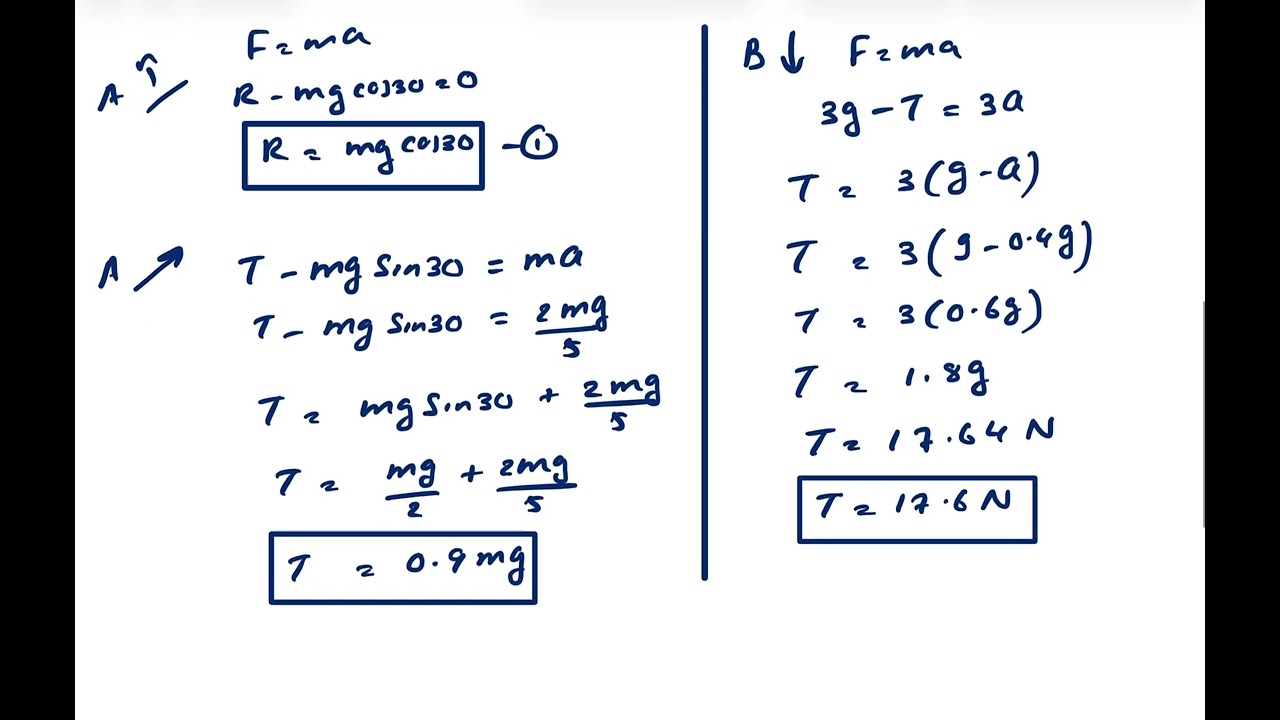 F = ma
A R - mg cos30 = 0
R = mg cos30 - ①
A T - mg sin30 = ma
T - mg sin30 = 2mg/5
T = mg sin30 + 2mg/5
T = mg/2 + 2mg/5
T = 0.9mg
B ↓ F = ma
3g - T = 3a
T = 3(g - a)
T = 3(g - 0.4g)
T = 3(0.6g)
T = 1.8g
T = 17.64 N
T = 17.6 N